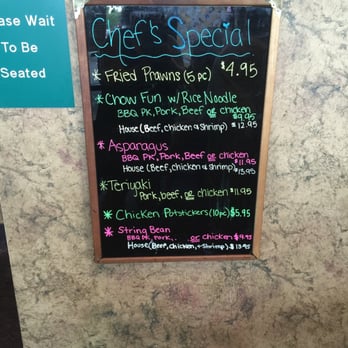 ase Wait
To Be
Seated
Chef's Special
* Fried Prawns (5 pc) $4.95
* Chow Fun w/ Rice Noodle
BBQ PK, Pork, Beef or chicken
$9.95
House (Beef, chicken & Shrimp) $12.95
* Asparagus
BBQ PK, Pork, Beef or chicken
$11.95
House (Beef, chicken & shrimp) $13.95
* Teriyaki
Pork, beef, or chicken $11.95
* Chicken Potstickers (10pc) $5.95
* String Bean
BBQ PK, Pork, or chicken $9.95
House (Beef, Chicken, + Shrimp) $13.95